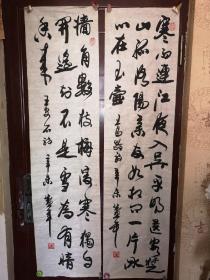 寒雨連江夜入吴平明送客楚
山孤洛陽親友如相问一片冰
心在玉壶 王昌龄诗
墙角數枝梅凌寒獨自
開遥知不是雪為有暗
香来 王安石诗